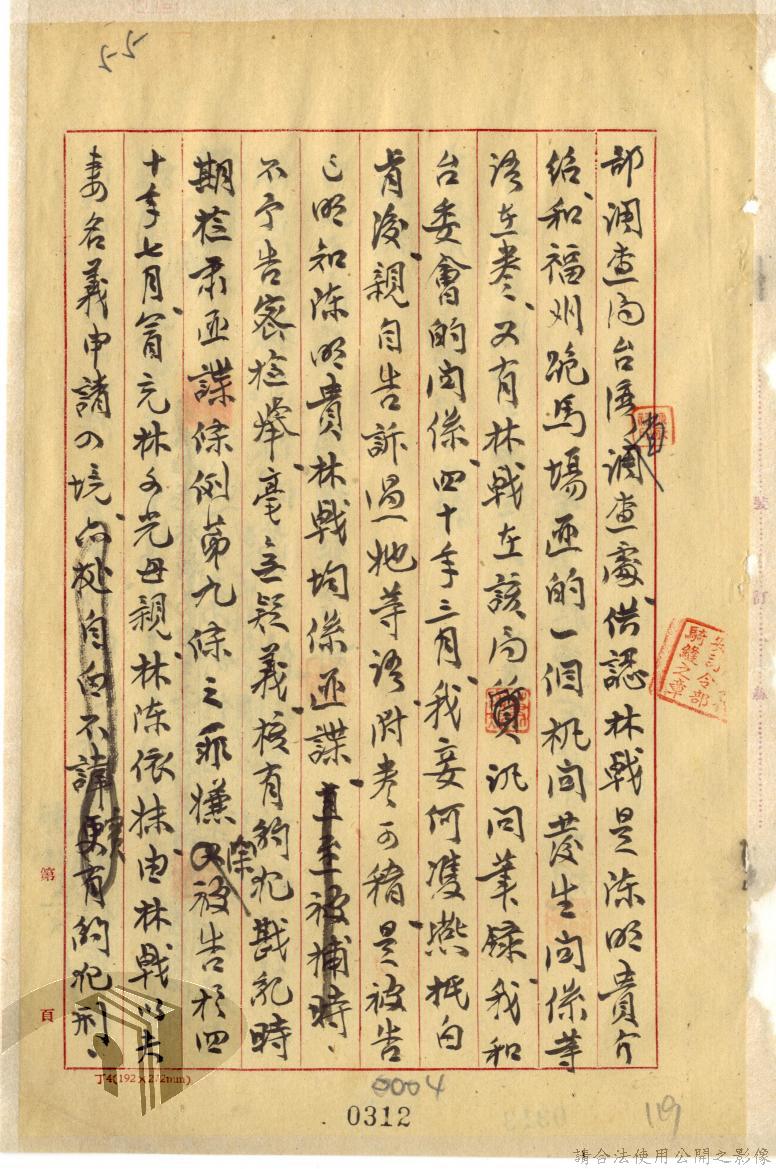 55
部調查局台灣省調查處供認林戟是陳明貴介
紹和福州跑馬場匪的一個機向發生向係等
語在卷、又有林戟在該局質訊問筆錄我和
台委會的関係、四十年三月、我妾何雙燕抵台
肯後、親自告訴過她等語、附卷可稽、是被告
已明知陳明貴、林戟均係匪諜、直至被捕時、
不予告密檢舉、毫無疑義、核有豹犯戡亂時
期檢肅匪諜條例第九條之罪嫌、又被告於四
深
十年七月、冒充林多光母親、林陳依妹、由林戟以夫
妻名義申請入境、處自白不諱、更有豹犯刑、
安司令部
騎縫之章
裝
訂
線
第
頁
丁4(192×272mm)
0004
0312
119
請合法使用公開之影像